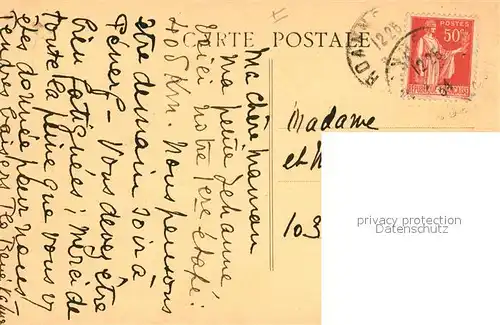 CARTE POSTALE
Ma chère Maman
ma petite Jehanne
Voici notre 1ère étape:
408 Km. Nous pensons
être demain soir à
Vous devez être
bien fatiguées! Merci de
toute la peine que vous v/
êtes donnée pour nous!
Tendres baisers
ROANNE
12-25
12-25
POSTES
50c
Madame
et M
103
privacy protection
Datenschutz